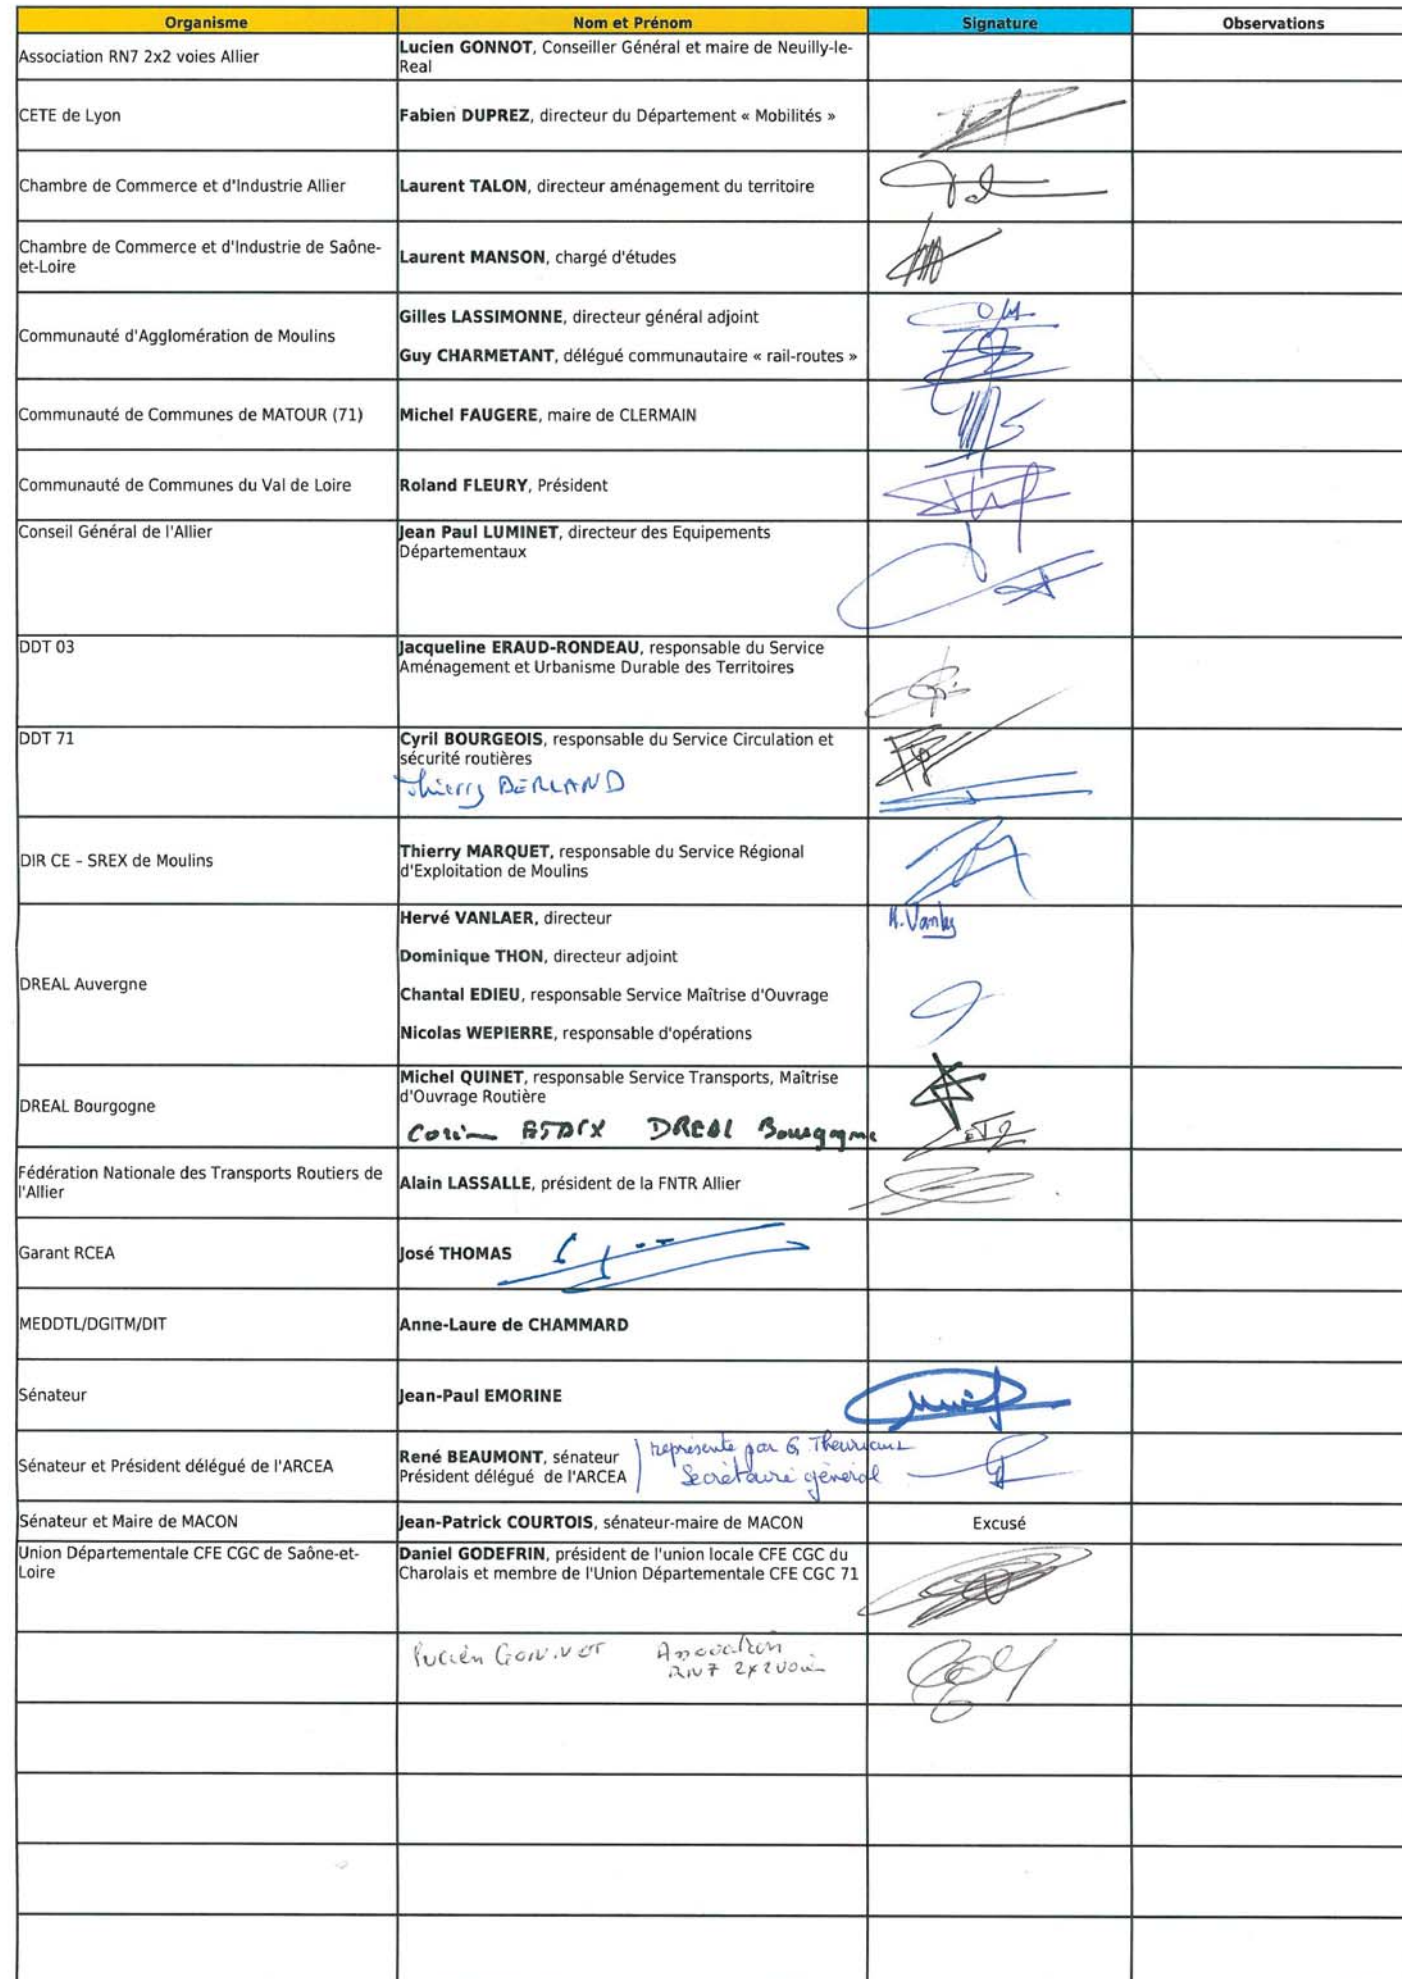 Organisme Nom et Prénom Signature Observations
Association RN7 2x2 voies Allier
Lucien GONNOT, Conseiller Général et maire de Neuilly-le-
Real
CETE de Lyon
Fabien DUPREZ, directeur du Département « Mobilités »
Chambre de Commerce et d'Industrie Allier
Laurent TALON, directeur aménagement du territoire
Chambre de Commerce et d'Industrie de Saône-
et-Loire
Laurent MANSON, chargé d'études
Communauté d'Agglomération de Moulins
Gilles LASSIMONNE, directeur général adjoint
Guy CHARMETANT, délégué communautaire « rail-routes »
Communauté de Communes de MATOUR (71)
Michel FAUGERE, maire de CLERMAIN
Communauté de Communes du Val de Loire
Roland FLEURY, Président
Conseil Général de l'Allier
Jean Paul LUMINET, directeur des Equipements
Départementaux
DDT 03
Jacqueline ERAUD-RONDEAU, responsable du Service
Aménagement et Urbanisme Durable des Territoires
DDT 71
Cyril BOURGEOIS, responsable du Service Circulation et
sécurité routières
Thierry BERLAND
DIR CE – SREX de Moulins
Thierry MARQUET, responsable du Service Régional
d'Exploitation de Moulins
DREAL Auvergne
Hervé VANLAER, directeur
Dominique THON, directeur adjoint
Chantal EDIEU, responsable Service Maîtrise d'Ouvrage
Nicolas WEPIERRE, responsable d'opérations
DREAL Bourgogne
Michel QUINET, responsable Service Transports, Maîtrise
d'Ouvrage Routière
DREAL Bourgogne
Fédération Nationale des Transports Routiers de
l'Allier
Alain LASSALLE, président de la FNTR Allier
Garant RCEA
José THOMAS
MEDDTL/DGITM/DIT
Anne-Laure de CHAMMARD
Sénateur
Jean-Paul EMORINE
Sénateur et Président délégué de l'ARCEA
René BEAUMONT, sénateur
Président délégué de l'ARCEA
représenté par G
Secrétaire général
Sénateur et Maire de MACON
Jean-Patrick COURTOIS, sénateur-maire de MACON
Excusé
Union Départementale CFE CGC de Saône-et-
Loire
Daniel GODEFRIN, président de l'union locale CFE CGC du
Charolais et membre de l'Union Départementale CFE CGC 71
Lucien GONNOT Association
RN7 2x2 voies